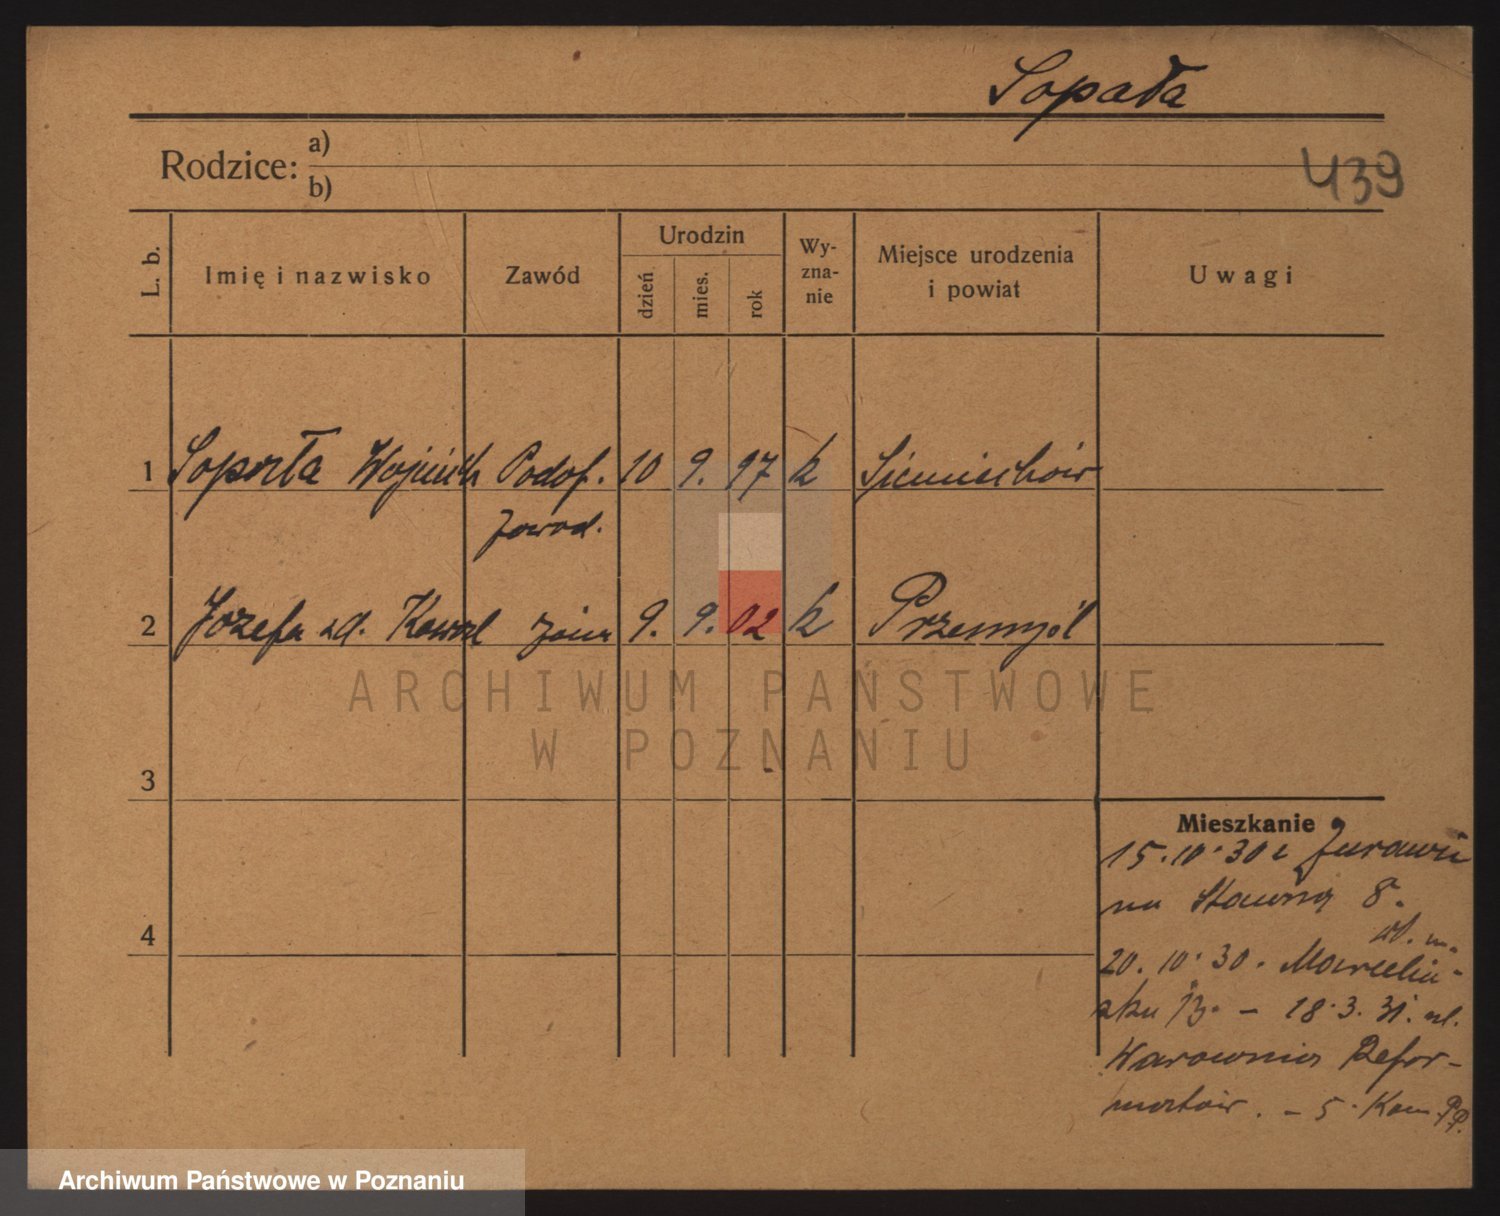 Sopała
Rodzice: a)
b)
439
L. b.
Imię i nazwisko
Zawód
Urodzin
dzień
mies.
rok
Wy-
zna-
nie
Miejsce urodzenia
i powiat
Uwagi
1 Sopała Wojciech Podof. 10 9. 97 k Siemiechów
zawod.
2 Józefa zd. Kowal żona 9. 9. 02 k Przemyśl
ARCHIWUM PAŃSTWOWE
W POZNANIU
3
Mieszkanie
15.10.30 z Żurawii
na Stawną 8.
4
20. 10. 30. Marceliń-
ska 13. – 18.3.31. ul.
Warownia Refor-
matów. – 5. Kom. P.P.
Archiwum Państwowe w Poznaniu